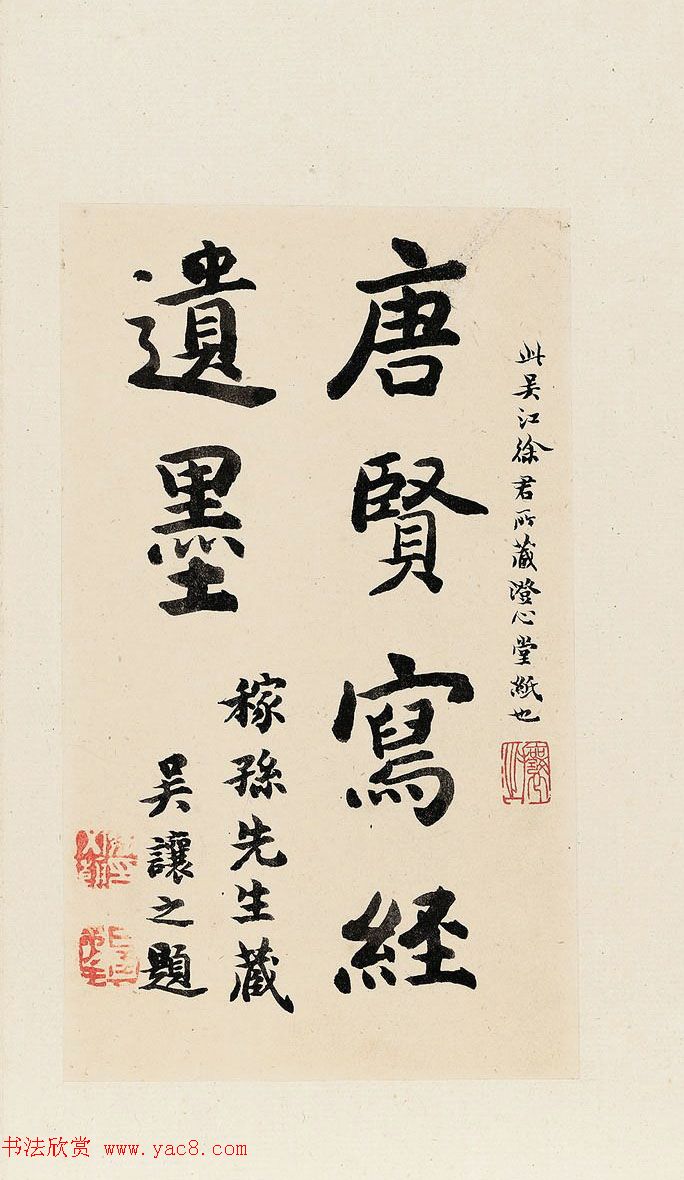 此吳江徐君所藏澄心堂紙也
唐賢寫経
遺墨
稼孫先生藏
吳讓之題
书法欣赏 www.yac8.com